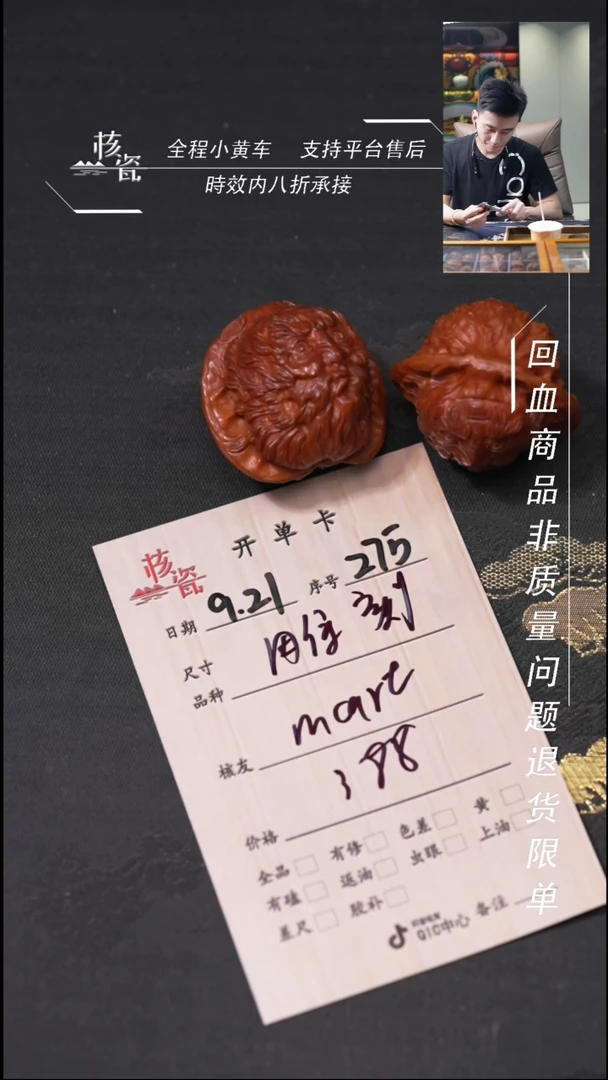 核瓷
全程小黄车 支持平台售后
時效内八折承接
回血商品非质量问题退货限单
核瓷
开单卡
日期 9.21 序号 275
尺寸
品种
核友 mart
价格 398
全品 有修 色差 黄
有磕 返油 虫眼 上油
差尺 胶补
QIC中心 备注